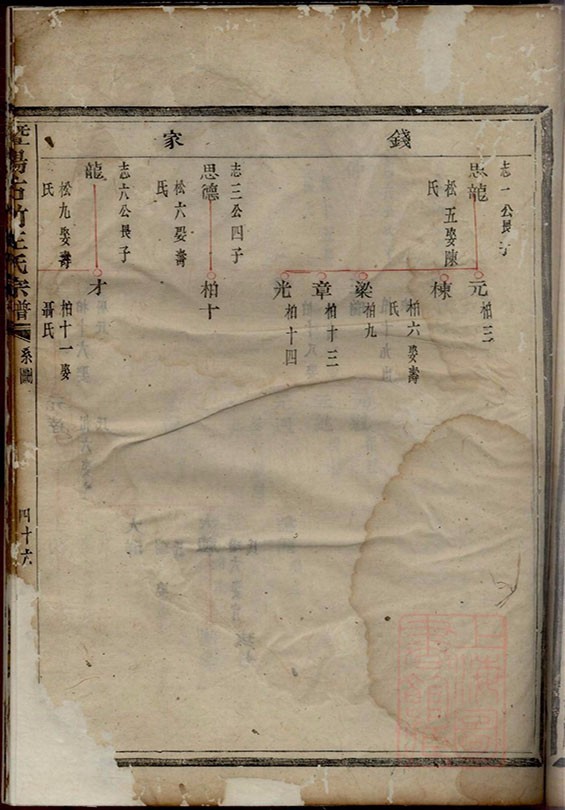 錢 家
志一公長子
思龍
松五娶陳
氏
元
柏三
棟
柏六娶壽
氏
梁
柏九
章
柏十三
光
柏十四
志三公四子
思德
松六娶壽
氏
柏十
志六公長子
龍
松九娶壽
氏
才
柏十一娶
聶氏
暨陽古竹王氏宗譜
系圖
四十六